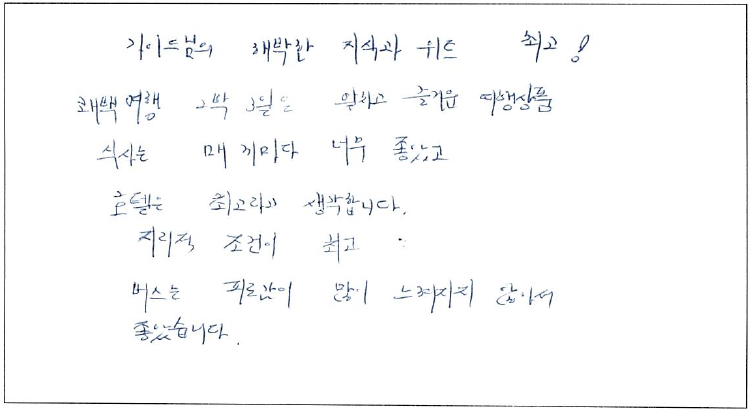 가이드님의 해박한 지식과 위트 최고!
퀘백여행 2박 3일은 알차고 즐거운 여행상품
식사는 매 끼마다 너무 좋았고
호텔은 최고라고 생각합니다.
지리적 조건이 최고
버스는 피로감이 많이 느껴지지 않아서
좋았습니다.